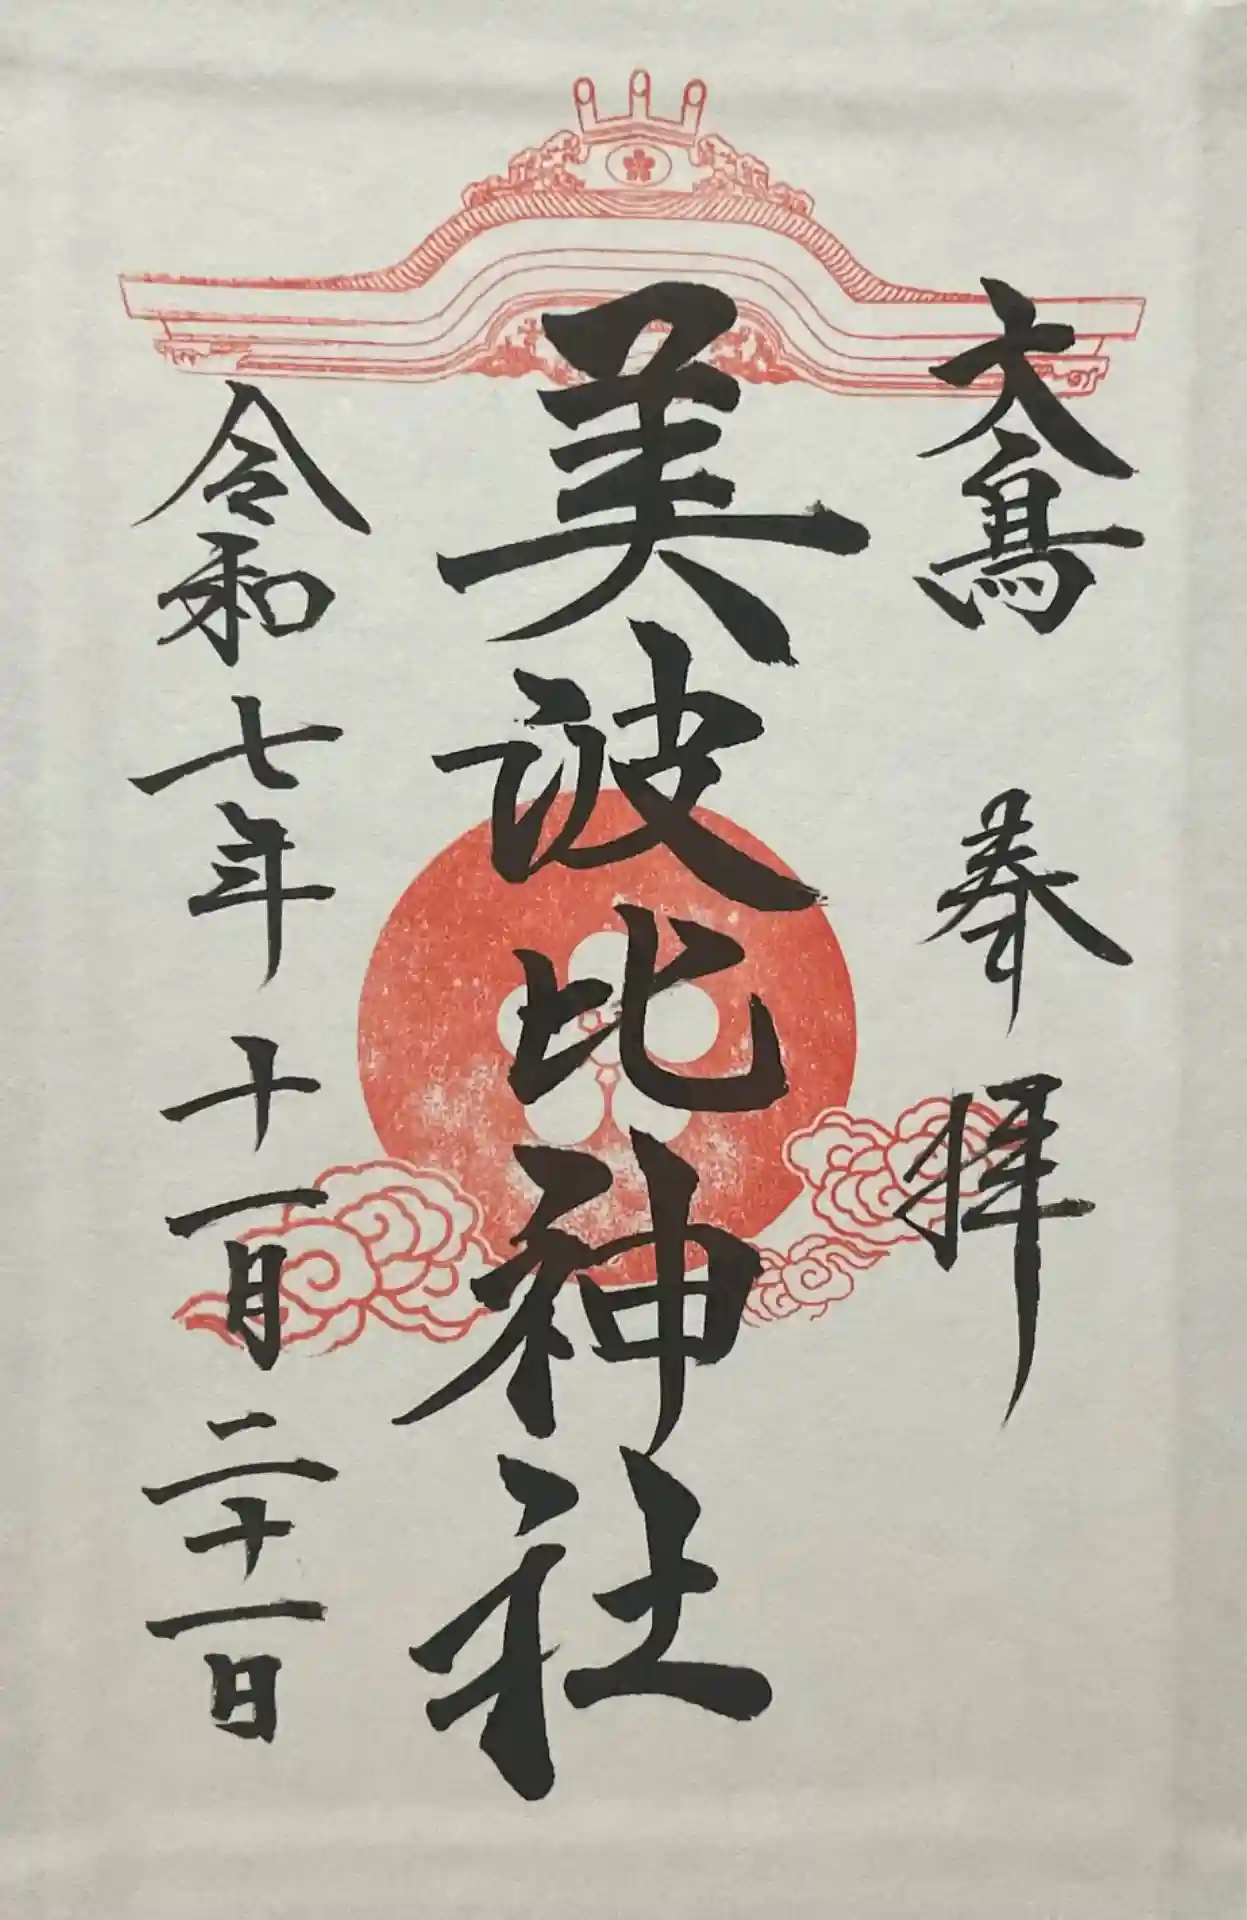 大鳥 奉拝
美波比神社
令和七年十一月二十一日